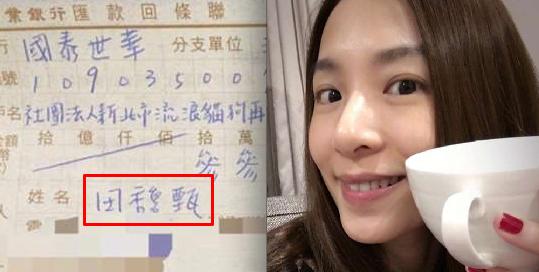 業銀行匯款回條聯
行 國泰世華 分支單位
號 10903500
戶名 社團法人新北市流浪貓狗再
金額 拾億仟佰拾萬
幣
參參
姓名 田馥甄
人